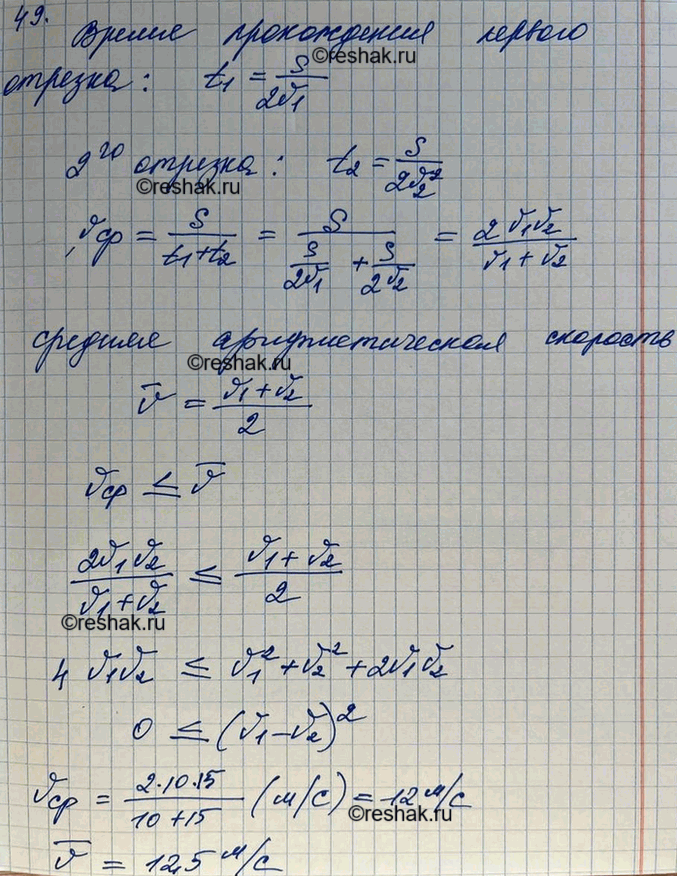 49.
Время прохождения первого
©reshak.ru
отрезка: t₁ = S/2υ₁
2го отрезка: t₂ = S/2υ₂²
©reshak.ru
υср = S/(t₁+t₂) = S/(S/2υ₁ + S/2υ₂) = 2υ₁υ₂/(υ₁+υ₂)
средняя арифметическая скорость
©reshak.ru
ῡ = (υ₁+υ₂)/2
υср ≤ ῡ
2υ₁υ₂/(υ₁+υ₂) ≤ (υ₁+υ₂)/2
©reshak.ru
4υ₁υ₂ ≤ υ₁²+υ₂²+2υ₁υ₂
0 ≤ (υ₁-υ₂)²
υср = 2·10·15/(10+15) (м/с) = 12 м/с
©reshak.ru
ῡ = 12,5 м/с